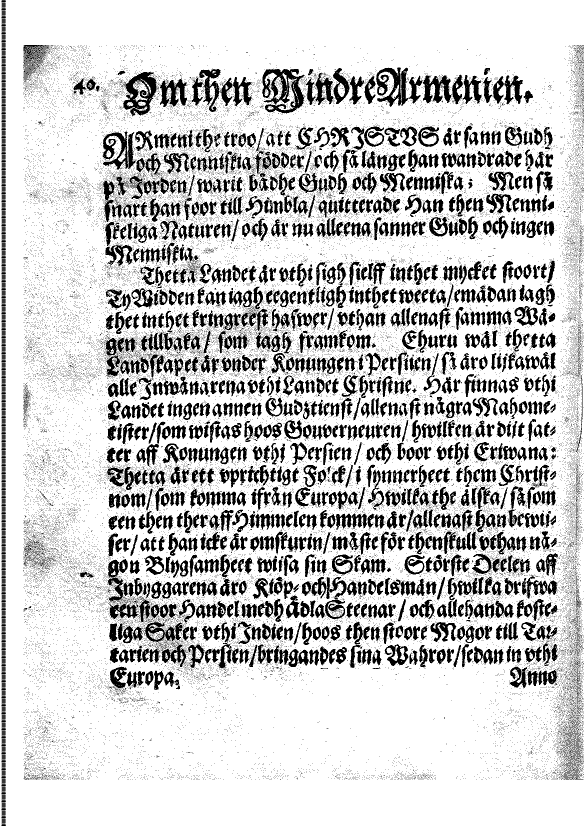 40. Om then Mindre Armenien.
ARmeni the troo/ att CHRISTUS är sann Gudh
och Menniskia födder/ och så länge han wandrade här
på Jorden/ warit bådhe Gudh och Menniska; Men så
snart han foor till Himbla/ quitterade Han then Menni-
skeliga Naturen/ och är nu alleena sanner Gudh och ingen
Menniskia.
Thetta Landet är vthi sigh sielff inthet mycket stoort/
Ty Widden kan iagh eegentligh inthet weeta/ emädan iagh
thet inthet kringreest hafwer/ vthan allenast samma Wä-
gen tillbaka/ som iagh framkom. Ehuru wäl thetta
Landskapet är vnder Konungen i Persiien/ så äro lijkawäl
alle Inwånarena vthi Landet Christne. Här finnas vthi
Landet ingen annen Gudztienst/ allenast några Mahome-
tister/ som wistas hoos Gouverneuren/ hwilken är dijt sat-
ter aff Konungen vthi Persien/ och boor vthi Eriwana:
Thetta är ett vprichtigt Folck/ i synnerheet them Christ-
nom/ som komma ifrån Europa/ Hwilka the älska/ så som
een then ther aff Himmelen kommen är/ allenast han bewij-
ser/ att han icke är omskurin/ måste för thenskull vthan nå-
gon Blygsamheet wiisa sin Skam. Störste Deelen aff
Inbyggarena äro Kiöp- och Handelsmän/ hwilka drifwa
een stoor Handel medh ädla Steenar/ och allehanda koste-
liga Saker vthi Indien/ hoos then stoore Mogor till Tar-
tarien och Persien/ bringandes sina Wahror/ sedan in vthi
Europa. Anno